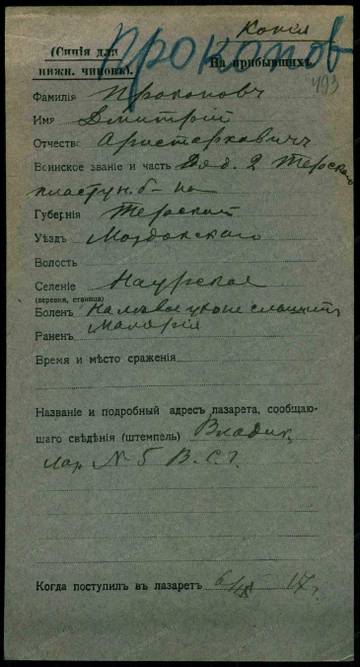 Копія
Прокопов
(Синія для
нижн. чиновъ).
На прибывшихъ
493
Фамилія Прокоповъ
Имя Дмитрій
Отчество Аристарховичъ
Воинское званіе и часть Ряд. 2 Терскаго
пластун. б-на
Губернія Терской
Уѣздъ Моздокскаго
Волость
Селеніе Наурское
(деревня, станица)
Боленъ На лѣвое ухо не слышитъ
Малярія
Раненъ
Время и мѣсто сраженія
Названіе и подробный адресъ лазарета, сообщаю-
щаго свѣдѣнія (штемпель) Владик.
лаз. № 5 В. С. Г.
Когда поступилъ въ лазаретъ 6/IX 17 г.